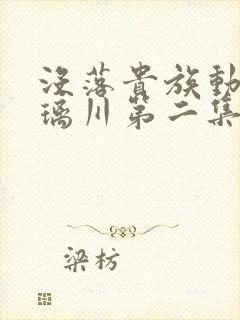 没落貴族動
璃川第二集
梁枋